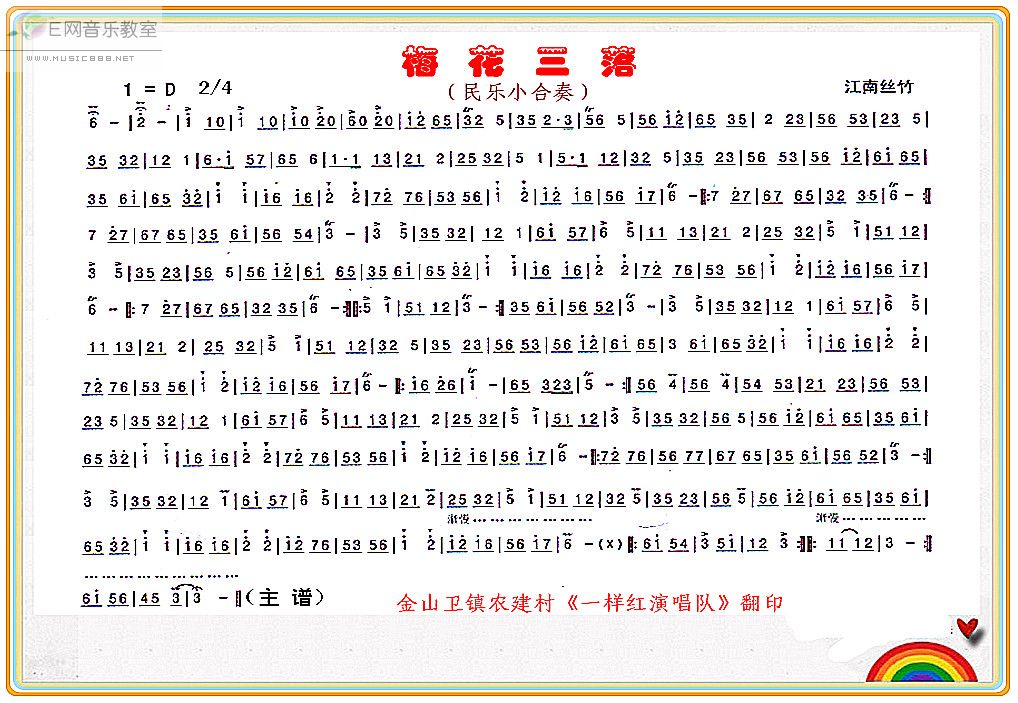 E网音乐教室
WWW.MUSIC888.NET
梅花三落
(民乐小合奏)
1 = D 2/4 江南丝竹
6 – | 2 – | i 10 | i 10 | i0 20 | 60 20 | i2 65 | 32 5 | 35 2·3 | 56 5 | 56 i2 | 65 35 | 2 23 | 56 53 | 23 5 |
35 32 | 12 1 | 6·i 57 | 65 6 | 1·1 13 | 21 2 | 25 32 | 5 1 | 5·1 12 | 32 5 | 35 23 | 56 53 | 56 i2 | 6i 65 |
35 6i | 65 32 | i i | i6 i6 | 2 2 | 72 76 | 53 56 | i 2 | i2 i6 | 56 i7 | 6 – :|: 7 27 | 67 65 | 32 35 | 6 – :|
7 27 | 67 65 | 35 6i | 56 54 | 3 – | 3 5 | 35 32 | 12 1 | 6i 57 | 6 5 | 11 13 | 21 2 | 25 32 | 5 1 | 51 12 |
3 5 | 35 23 | 56 5 | 56 i2 | 6i 65 | 35 6i | 65 32 | i i | i6 i6 | 2 2 | 72 76 | 53 56 | i 2 | i2 i6 | 56 i7 |
6 – |: 7 27 | 67 65 | 32 35 | 6 – :|: 5 1 | 51 12 | 3 – :| 35 6i | 56 52 | 3 – | 3 5 | 35 32 | 12 1 | 6i 57 | 6 5 |
11 13 | 21 2 | 25 32 | 5 1 | 51 12 | 32 5 | 35 23 | 56 53 | 56 i2 | 6i 65 | 3 6i | 65 32 | i i | i6 i6 | 2 2 |
72 76 | 53 56 | i 2 | i2 i6 | 56 i7 | 6 – |: i6 26 | i – | 65 323 | 5 – :| 56 4 | 56 4 | 54 53 | 21 23 | 56 53 |
23 5 | 35 32 | 12 1 | 6i 57 | 6 5 | 11 13 | 21 2 | 25 32 | 5 1 | 51 12 | 3 5 | 35 32 | 56 5 | 56 i2 | 6i 65 | 35 6i |
65 32 | i i | i6 i6 | 2 2 | 72 76 | 53 56 | i 2 | i2 i6 | 56 i7 | 6 – |: 72 76 | 56 77 | 67 65 | 35 6i | 56 52 | 3 – :|
3 5 | 35 32 | 12 1 | 6i 57 | 6 5 | 11 13 | 21 2 | 25 32 | 5 1 | 51 12 | 32 5 | 35 23 | 56 5 | 56 i2 | 6i 65 | 35 6i |
渐慢 渐慢
65 32 | i i | i6 i6 | 2 2 | i2 76 | 53 56 | i 2 | i2 i6 | 56 i7 | 6 – (x) |: 6i 54 | 3 5i | 12 3 :|: 11 12 | 3 – :|
6i 56 | 45 3 | 3 – || (主 谱)
金山卫镇农建村《一样红演唱队》翻印